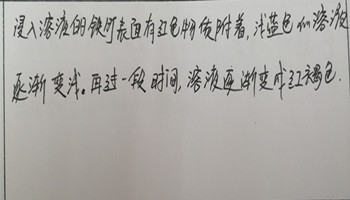 浸入溶液的铁钉表面有红色物质附着,浅蓝色的溶液
逐渐变浅。再过一段时间,溶液逐渐变成红褐色.